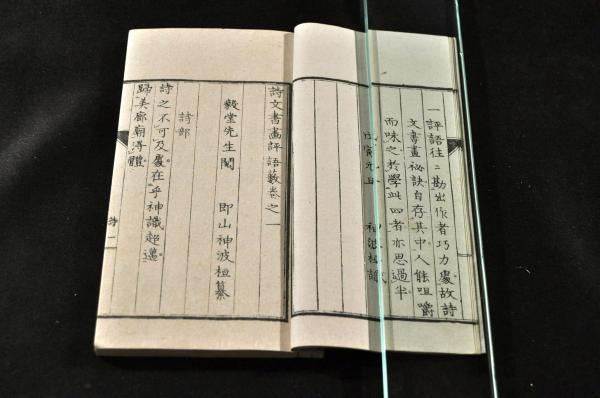 一評語往〻勘出作者巧力處故詩
文書畫祕訣自存其中人能咀嚼
而味之於學此四者亦思過半
戊寅
神波桓
詩文書畫評語藪卷之一
毅堂先生閱　即山神波桓纂
詩部
詩之不可及處在乎神識超邁
歸美廊廟得體
詩一